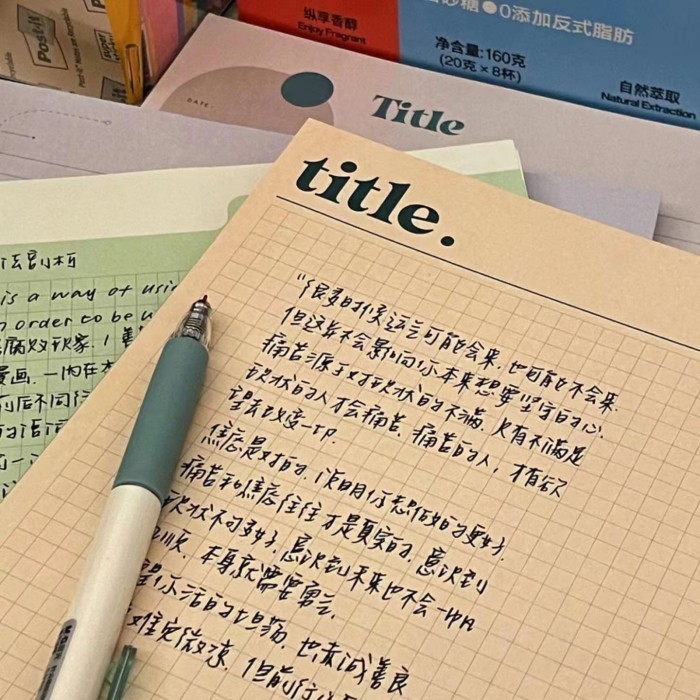 纵享香醇
Enjoy Fragrant
砂糖●0添加反式脂肪
净含量:160克
(20克×8杯)
自然萃取
Natural Extraction
Post-it
DATE.
Title
title.
is a way of usi
n order to be u
漫画.一
前后不同
“很多时候运气可能会来.也可能不会来.
但这并不会影响你本来想要坚守的心.
痛苦源于对现状的不满.只有不满足
现状的人才会痛苦.痛苦的人,才有欲
望去改变一切.
焦虑是对的,说明你想做的更好.
痛苦和焦虑往往才是真实的,意识到
现状不可多好,意识到未来也不会一帆
风顺.本身就需要勇气.
望你活的坦荡.也赤诚善良
难免微凉,但前行